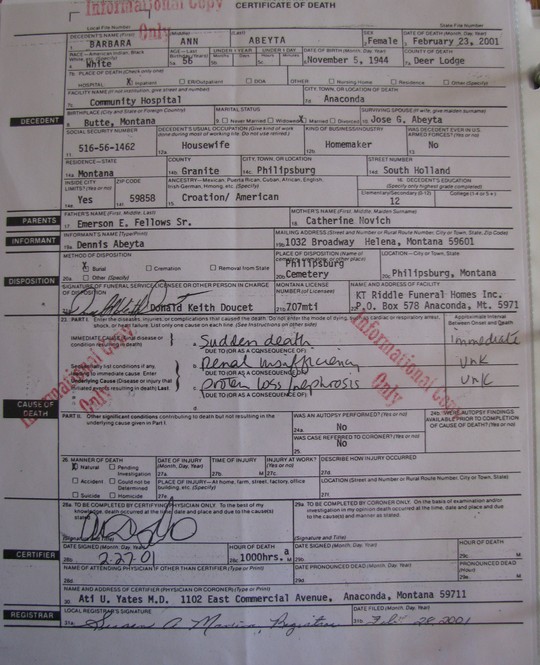 Informational Copy
Only
CERTIFICATE OF DEATH
Local File Number
State File Number
DECEDENT'S NAME (First) (Middle) (Last) SEX DATE OF DEATH (Month, Day, Year)
1. BARBARA ANN ABEYTA 2. Female 3. February 23, 2001
RACE—American Indian, Black White, etc. (Specify) AGE—Last Birthday (Yrs) UNDER 1 YEAR UNDER 1 DAY DATE OF BIRTH (Month, Day, Year) COUNTY OF DEATH
4. White 5a. 56 6. November 5, 1944 7a. Deer Lodge
7b. PLACE OF DEATH (Check only one)
HOSPITAL: X Inpatient ER/Outpatient DOA OTHER: Nursing Home Residence Other (Specify)
FACILITY NAME (If not institution, give street and number) CITY, TOWN, OR LOCATION OF DEATH
7c. Community Hospital 7d. Anaconda
DECEDENT
BIRTHPLACE (City and State or Foreign Country) MARITAL STATUS SURVIVING SPOUSE (If wife, give maiden surname)
8. Butte, Montana 9. Never Married Widowed X Married Divorced 10. Jose G. Abeyta
SOCIAL SECURITY NUMBER DECEDENT'S USUAL OCCUPATION (Give kind of work done during most of working life. Do not use retired.) KIND OF BUSINESS/INDUSTRY WAS DECEDENT EVER IN U.S. ARMED FORCES? (Yes or No)
11. 516-56-1462 12a. Housewife 12b. Homemaker 13. No
RESIDENCE—STATE COUNTY CITY, TOWN, OR LOCATION STREET NUMBER
14a. Montana 14b. Granite 14c. Philipsburg 14d. South Holland
INSIDE CITY LIMITS? (Yes or No) ZIP CODE ANCESTRY—Mexican, Puerto Rican, Cuban, African, English, Irish German, Hmong, etc. (Specify) 16. DECEDENT'S EDUCATION (Specify only highest grade completed)
Elementary/Secondary (0-12) College (1-4 or 5+)
14e. Yes 14f. 59858 15. Croation/ American 12
PARENTS
FATHER'S NAME (First, Middle, Last) MOTHER'S NAME (First, Middle, Maiden Surname)
17. Emerson E. Fellows Sr. 18. Catherine Novich
INFORMANT
INFORMANT'S NAME (Type/Print) MAILING ADDRESS (Street and Number or Rural Route Number, City or Town, State, Zip Code)
19a. Dennis Abeyta 19b. 1032 Broadway Helena, Montana 59601
METHOD OF DISPOSITION PLACE OF DISPOSITION LOCATION—City or Town, State
X Burial Cremation Removal from State Philipsburg
20a. Other (Specify) 20b. Cemetery 20c. Philipsburg, Montana
DISPOSITION
SIGNATURE OF FUNERAL SERVICE LICENSEE OR OTHER PERSON IN CHARGE OF DISPOSITION MONTANA LICENSE NUMBER (of Licensee) NAME AND ADDRESS OF FACILITY
KT Riddle Funeral Homes Inc.
Donald Keith Doucet 21b. 707mti P.O. Box 578 Anaconda, Mt. 5971
23. PART I. Enter the diseases, injuries, or complications that caused the death. Do not enter the mode of dying, such as cardiac or respiratory arrest, shock, or heart failure. List only one cause on each line. (See Instructions on other side) Approximate Interval Between Onset and Death
IMMEDIATE CAUSE (Final disease or condition resulting in death) a. Sudden death immediate
DUE TO (OR AS A CONSEQUENCE OF):
Sequentially list conditions if any, leading to immediate cause. Enter Underlying Cause (Disease or injury that initiated events resulting in death) Last
b. renal insufficiency unk
DUE TO (OR AS A CONSEQUENCE OF):
c. protein loss/nephrosis unk
DUE TO (OR AS A CONSEQUENCE OF):
d.
Informational Copy
Only
Informational Copy
Only
CAUSE OF DEATH
PART II. Other significant conditions contributing to death but not resulting in the underlying cause given in Part I. WAS AN AUTOPSY PERFORMED? (Yes or no) 24b. WERE AUTOPSY FINDINGS AVAILABLE PRIOR TO COMPLETION OF CAUSE OF DEATH? (Yes or no)
No
WAS CASE REFERRED TO CORONER? (Yes or No)
25. No
26. MANNER OF DEATH DATE OF INJURY (Month, Day, Year) TIME OF INJURY INJURY AT WORK? (Yes or no) DESCRIBE HOW INJURY OCCURRED
X Natural Pending Investigation 27a. 27b. M 27c. 27d.
Accident Could not be Determined PLACE OF INJURY—At home, farm, street, factory, office building, etc. (Specify) LOCATION (Street and Number or Rural Route Number, City or Town, State)
Suicide Homicide 27e.
28a. TO BE COMPLETED BY CERTIFYING PHYSICIAN ONLY To the best of my knowledge, death occurred at the time, date and place and due to the cause(s) stated. 29a. TO BE COMPLETED BY CORONER ONLY. On the basis of examination and/or investigation in my opinion death occurred at the time, date and place and due to the cause(s) and manner as stated.
(Signature and Title) (Signature and Title)
CERTIFIER
DATE SIGNED (Month, Day, Year) HOUR OF DEATH DATE SIGNED (Month, Day, Year) HOUR OF DEATH
28b. 2-27-01 28c. 1000hrs. a M 29b. 29c. M
NAME OF ATTENDING PHYSICIAN IF OTHER THAN CERTIFIER (Type or Print) DATE PRONOUNCED DEAD (Month, Day, Year) PRONOUNCED DEAD (Hour)
28d. 29d. 29e. M
NAME AND ADDRESS OF CERTIFIER (PHYSICIAN OR CORONER) (Type or Print)
30. Ati U. Yates M.D. 1102 East Commercial Avenue, Anaconda, Montana 59711
REGISTRAR
LOCAL REGISTRAR'S SIGNATURE DATE FILED (Month, Day, Year)
31a. Susan A Registrar 31b. Feb. 28, 2001